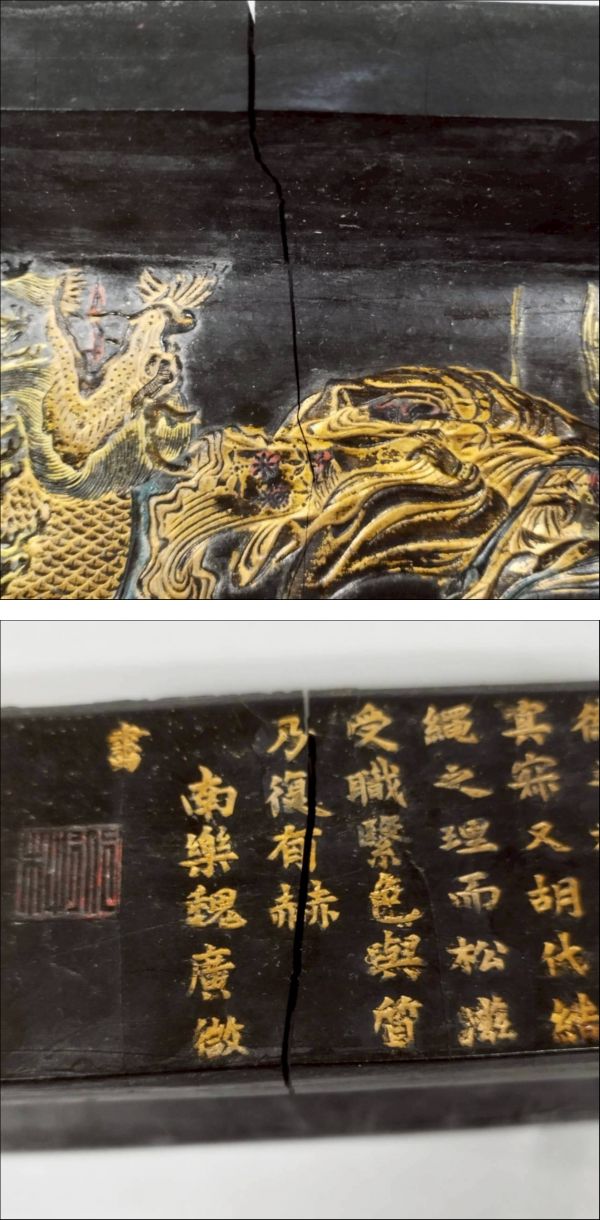 真宷又胡代結
繩之理而松滋
受職緊色與質
乃復有赫
南樂魏廣微
書